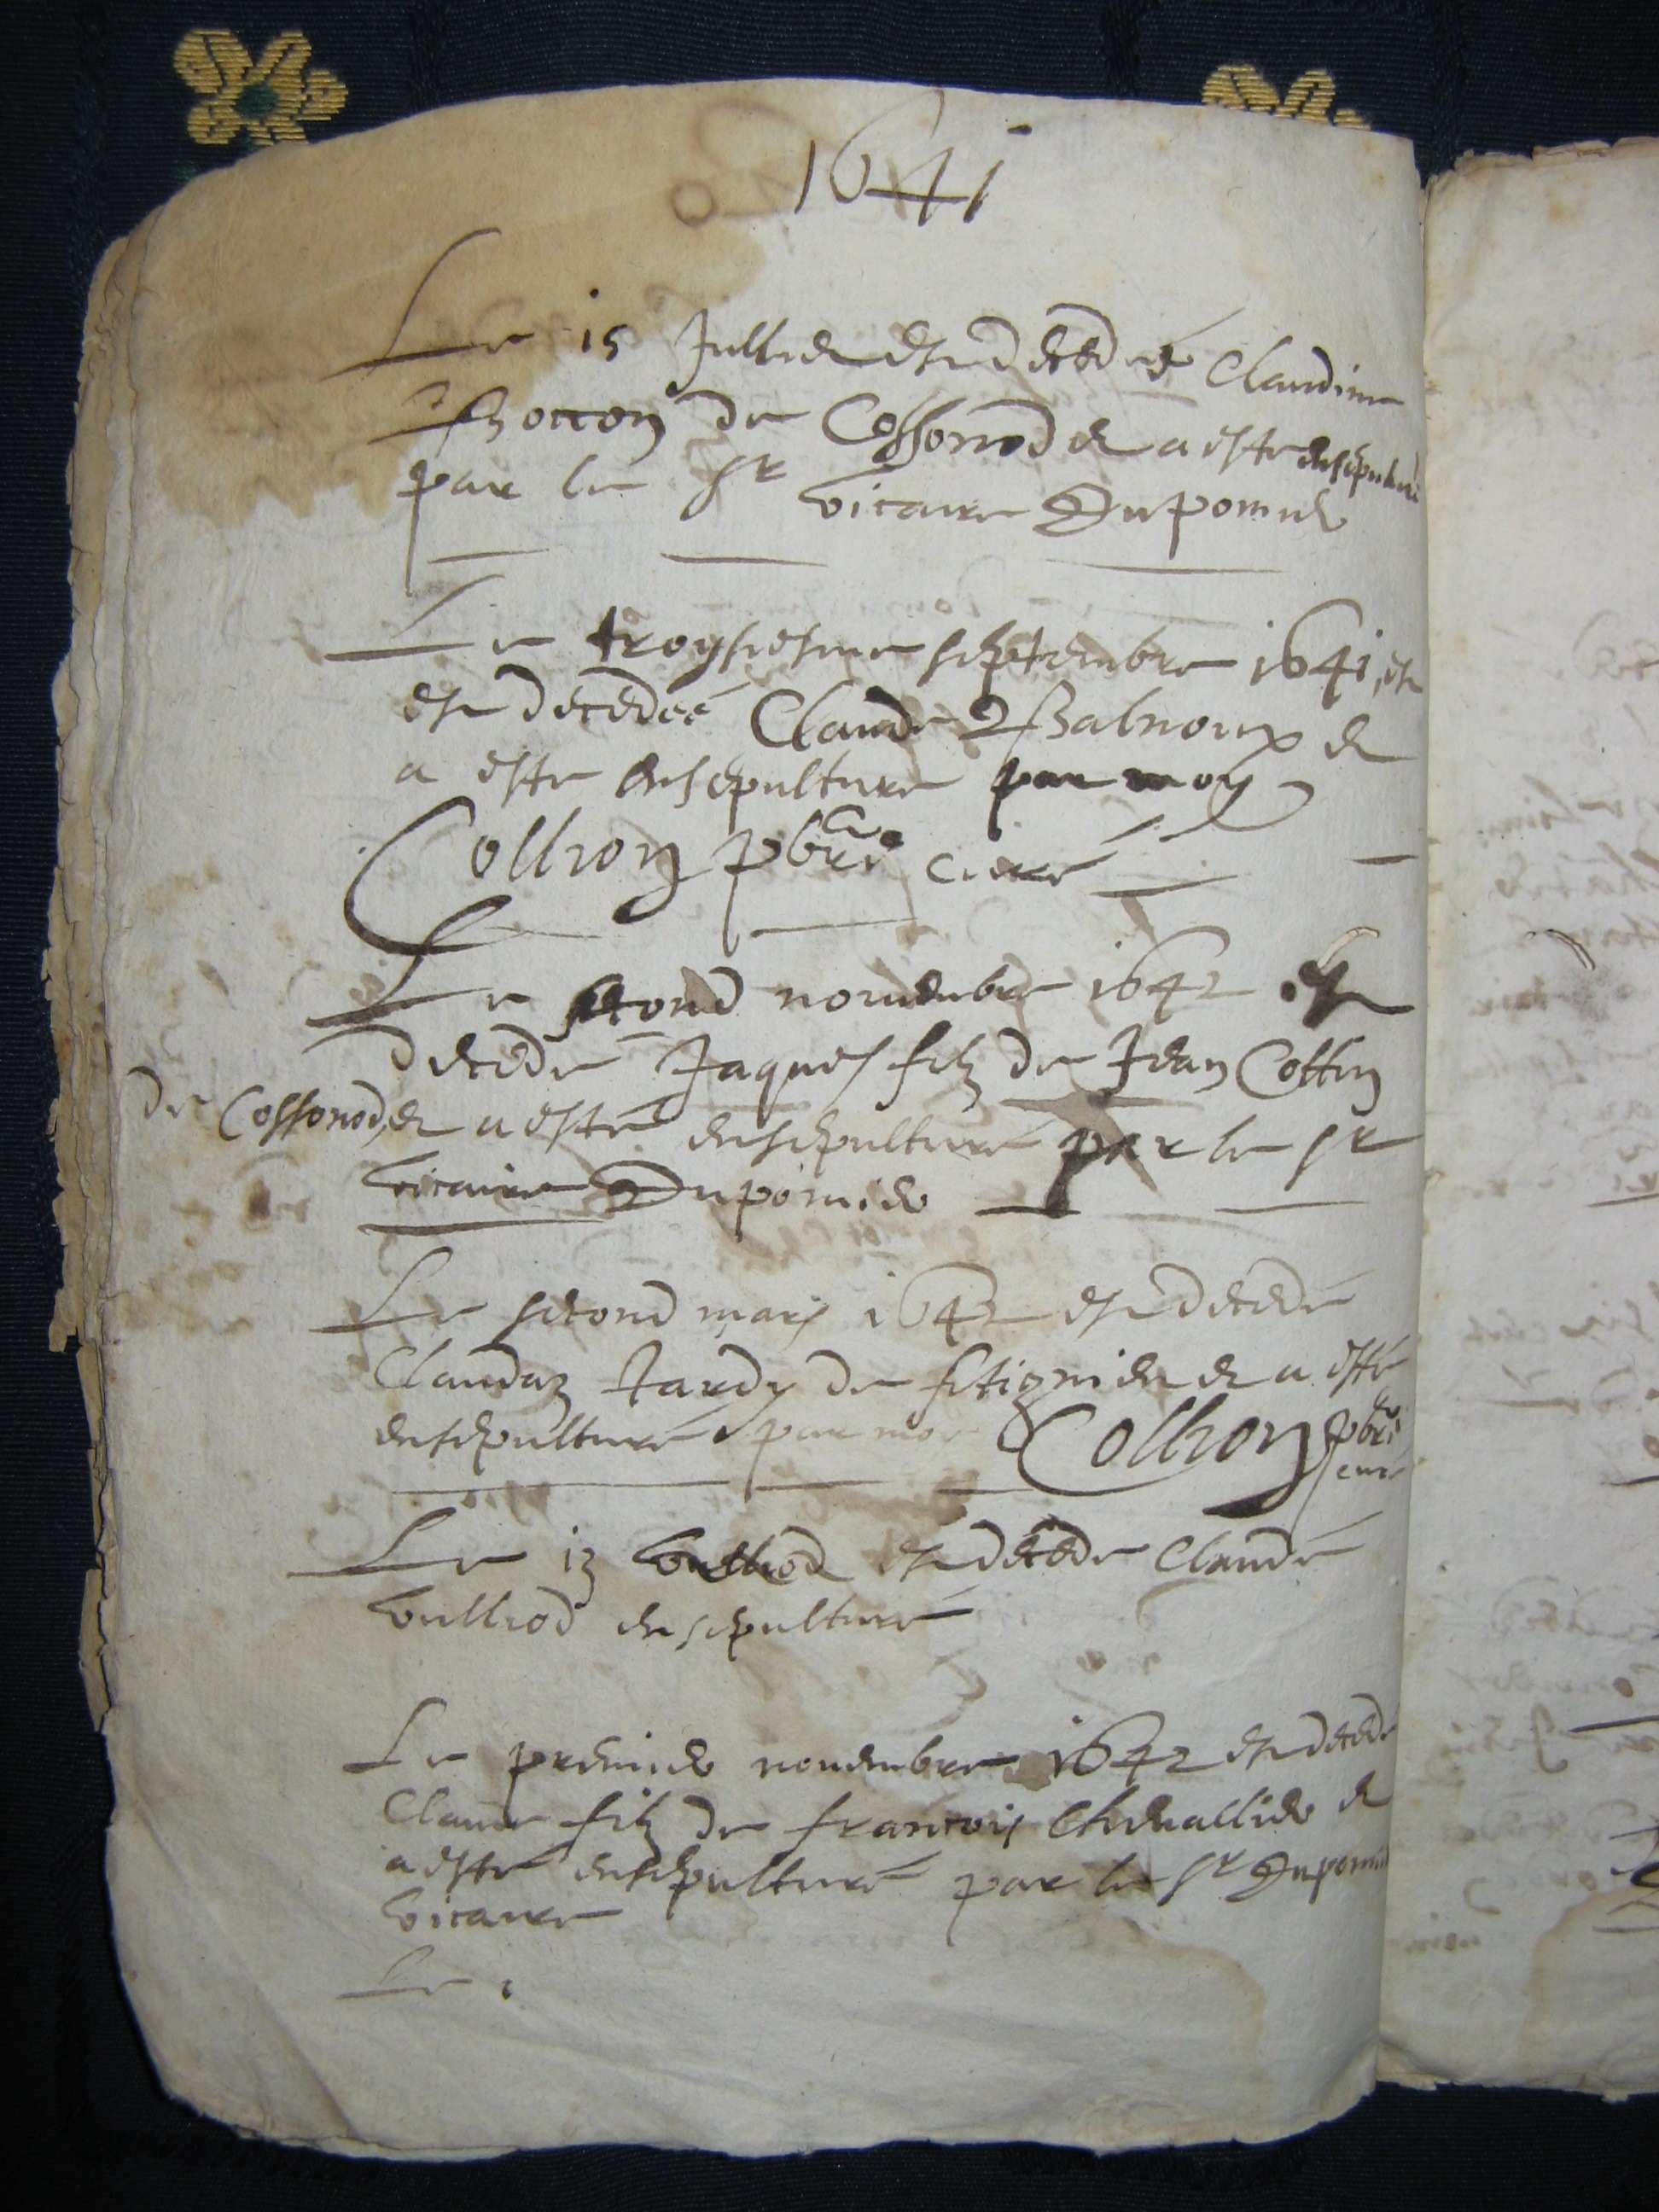 1641
Le 15 Jullet est decedeé Claudine
Boccon de Cossonod et a este ensepulturé
par le Sr vicaire Dupomier
Le troysiesme septembre 1641, est
est decedeé Claude Balnoux et
a este ensepulture par moy
Collion pbre curé
Le second novembre 1642 est
decede Jaques filz de Jean Cottin
de Cossonod, et a esté ensepulturé par le Sr
vicaire Dupomier
Le second mars 1642 est decedé
Clauda Tardy de et a esté
ensepulturé par moy Collion pbre
curé
Le 13 est decede Claude
Vulliod ensepulturé
Le premier novembre 1642 est decede
Claude filz de francois Chevallier et
a esté ensepulturé par le Sr Dupomier
vicaire
Le 1